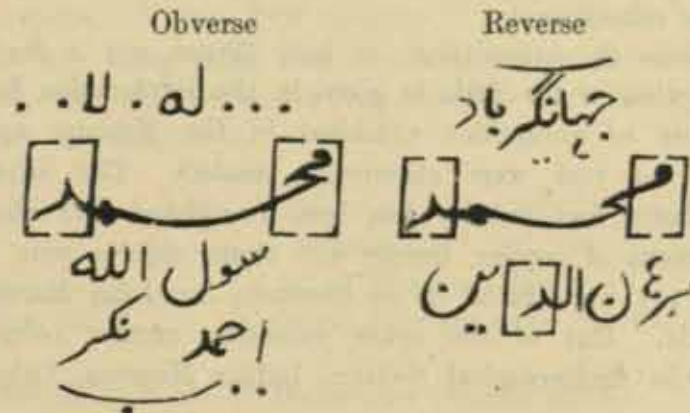 Obverse
. . . له . لا . . .
[مح]مـ[ـد]
سول الله
احمد نكر
Reverse
جهانگير باد
[مح]مـ[ـد]
ن ا[لد]ين